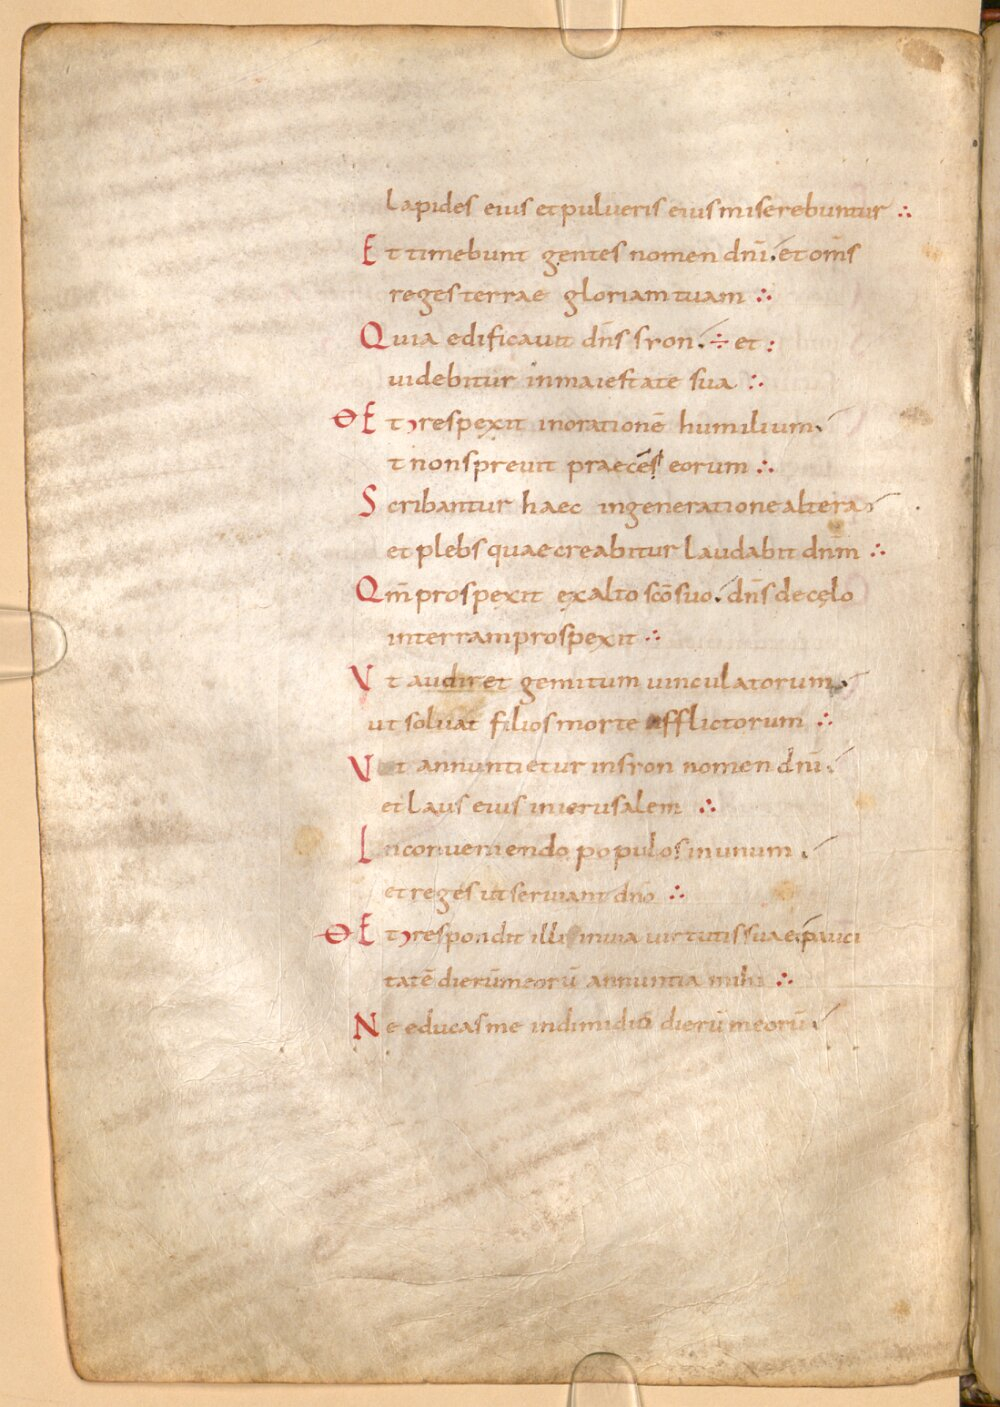 lapides eius et pulveris eius miserebuntur ∴
Et timebunt gentes nomen dñi. et om̄s
reges terrae gloriam tuam ∴
Quia edificavit dñs syon. ÷ et :
uidebitur in maiestate sua ∴
Θ Et respexit in orationē humilium.
t non sprevit praecēs eorum ∴
Scribantur haec in generatione altera
et plebs quae creabitur laudabit dnm̄ ∴
Qm̄ prospexit exalto scō suo. dñs de cęlo
in terram prospexit ∴
Vt audiret gemitum uinculatorum.
ut soluat filios morte afflictorum ∴
Vt annuntietur in syon nomen dñi.
et laus eius in ierusalem ∴
In conueniendo populos in unum.
et reges ut seruiant dno ∴
Θ Et respondit illi in uia uirtutis suae. pauci
tatē dierū meorū annuntia mihi ∴
Ne educas me in dimidio dierū meorū.